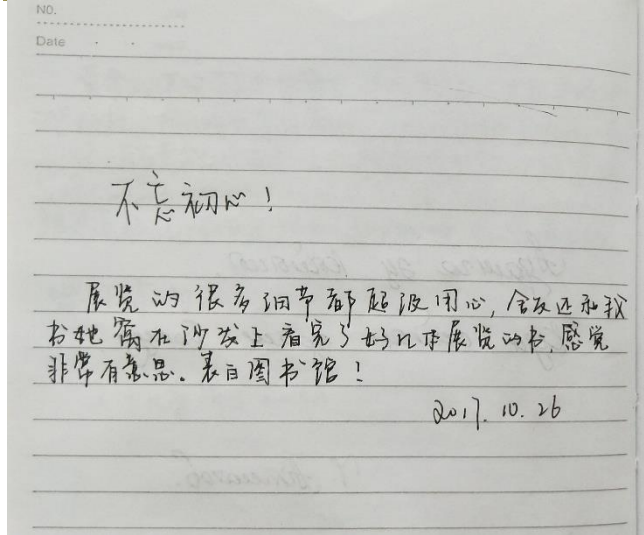 NO.
Date
不忘初心！
展览的很多细节都超级用心，舍友还和我
书她窝在沙发上看完了好几本展览的书，感觉
非常有意思。表白图书馆！
2017.10.26